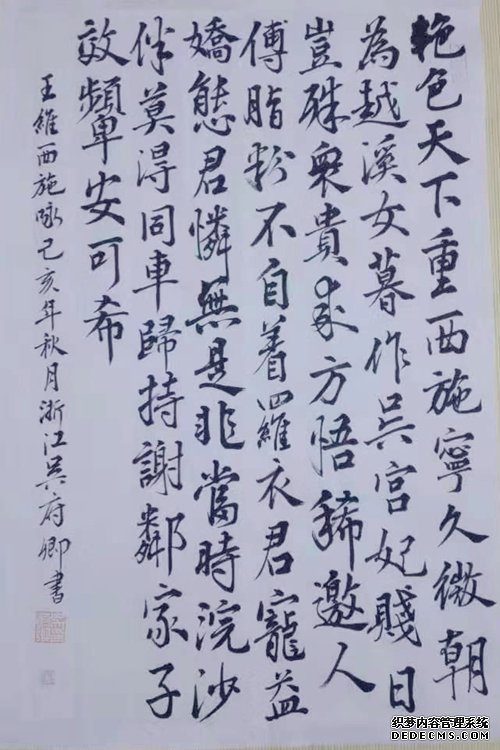 艳色天下重西施寧久微朝
為越溪女暮作吳宫妃賤日
豈殊衆貴来方悟稀邀人
傅脂粉不自着羅衣君寵益
嬌態君憐無是非當時浣沙
伴莫得同車歸持謝鄰家子
效顰安可希
王維西施咏己亥年秋月浙江吳府卿書
织梦内容管理系统
DEDECMS.COM